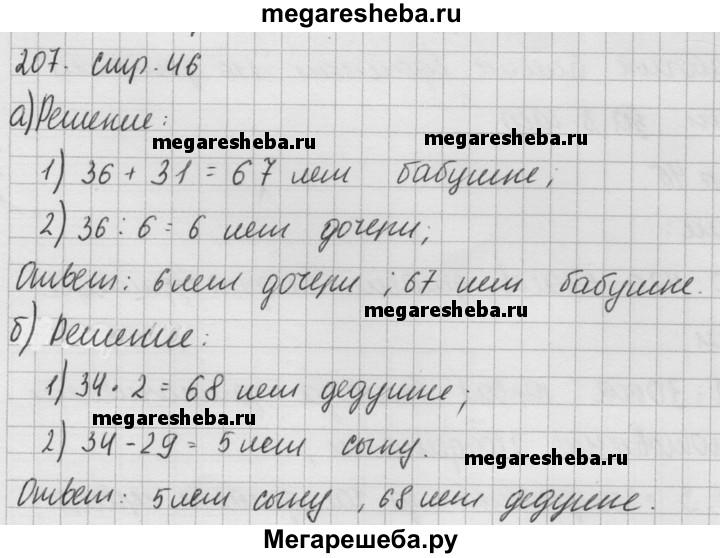 megaresheba.ru
207. стр. 46
а) Решение:
megaresheba.ru megaresheba.ru
1) 36 + 31 = 67 лет бабушке;
2) 36 : 6 = 6 лет дочери;
Ответ: 6 лет дочери ; 67 лет бабушке.
megaresheba.ru
б) Решение:
1) 34 · 2 = 68 лет дедушке;
megaresheba.ru
2) 34 - 29 = 5 лет сыну.
megaresheba.ru
Ответ: 5 лет сыну , 68 лет дедушке.
Мегарешеба.ру